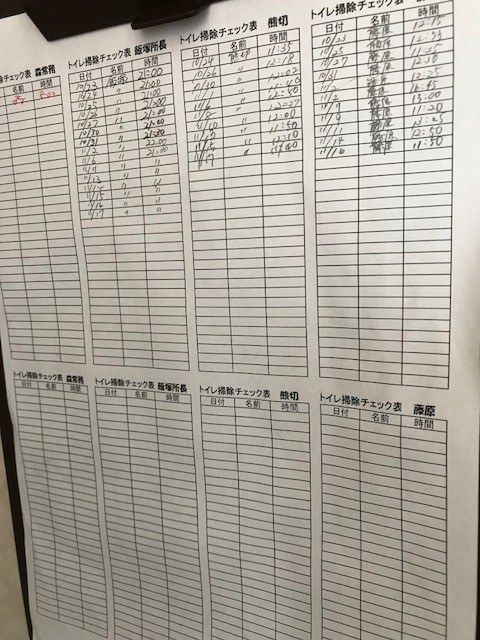 トイレ掃除チェック表 森常務
名前 時間
トイレ掃除チェック表 飯塚所長
日付 名前 時間
10/23 飯塚 21:00
10/24 〃 21:00
10/25 〃 21:00
10/26 〃 21:00
10/27 〃 21:00
10/30 〃 21:00
10/31 〃 22:00
11/2 〃 21:00
11/6 〃 〃
11/7 〃 〃
11/13 〃 〃
〃 〃
11/15 〃 〃
11/16 〃 〃
11/17 〃 〃
トイレ掃除チェック表 熊切
日付 名前 時間
10/24 熊切 11:35
10/26 〃 12:18
10/30 〃 12:02
10/31 〃
11/6 〃
〃 12:27
11/8 〃 12:00
11/10 〃 11:50
〃
〃
11/17 〃
トイレ掃除チェック表
日付 名前 時間
10/23 藤原 12:15
10/25 藤原
10/27 藤原
10/31 藤原
藤原
藤原
11/7 藤原 13:00
11/9 藤原 11:20
11/11 藤原
11/14 藤原 12:50
11/16 藤原 11:50
トイレ掃除チェック表 森常務
日付 名前 時間
トイレ掃除チェック表 飯塚所長
日付 名前 時間
トイレ掃除チェック表 熊切
日付 名前 時間
トイレ掃除チェック表 藤原
日付 名前 時間